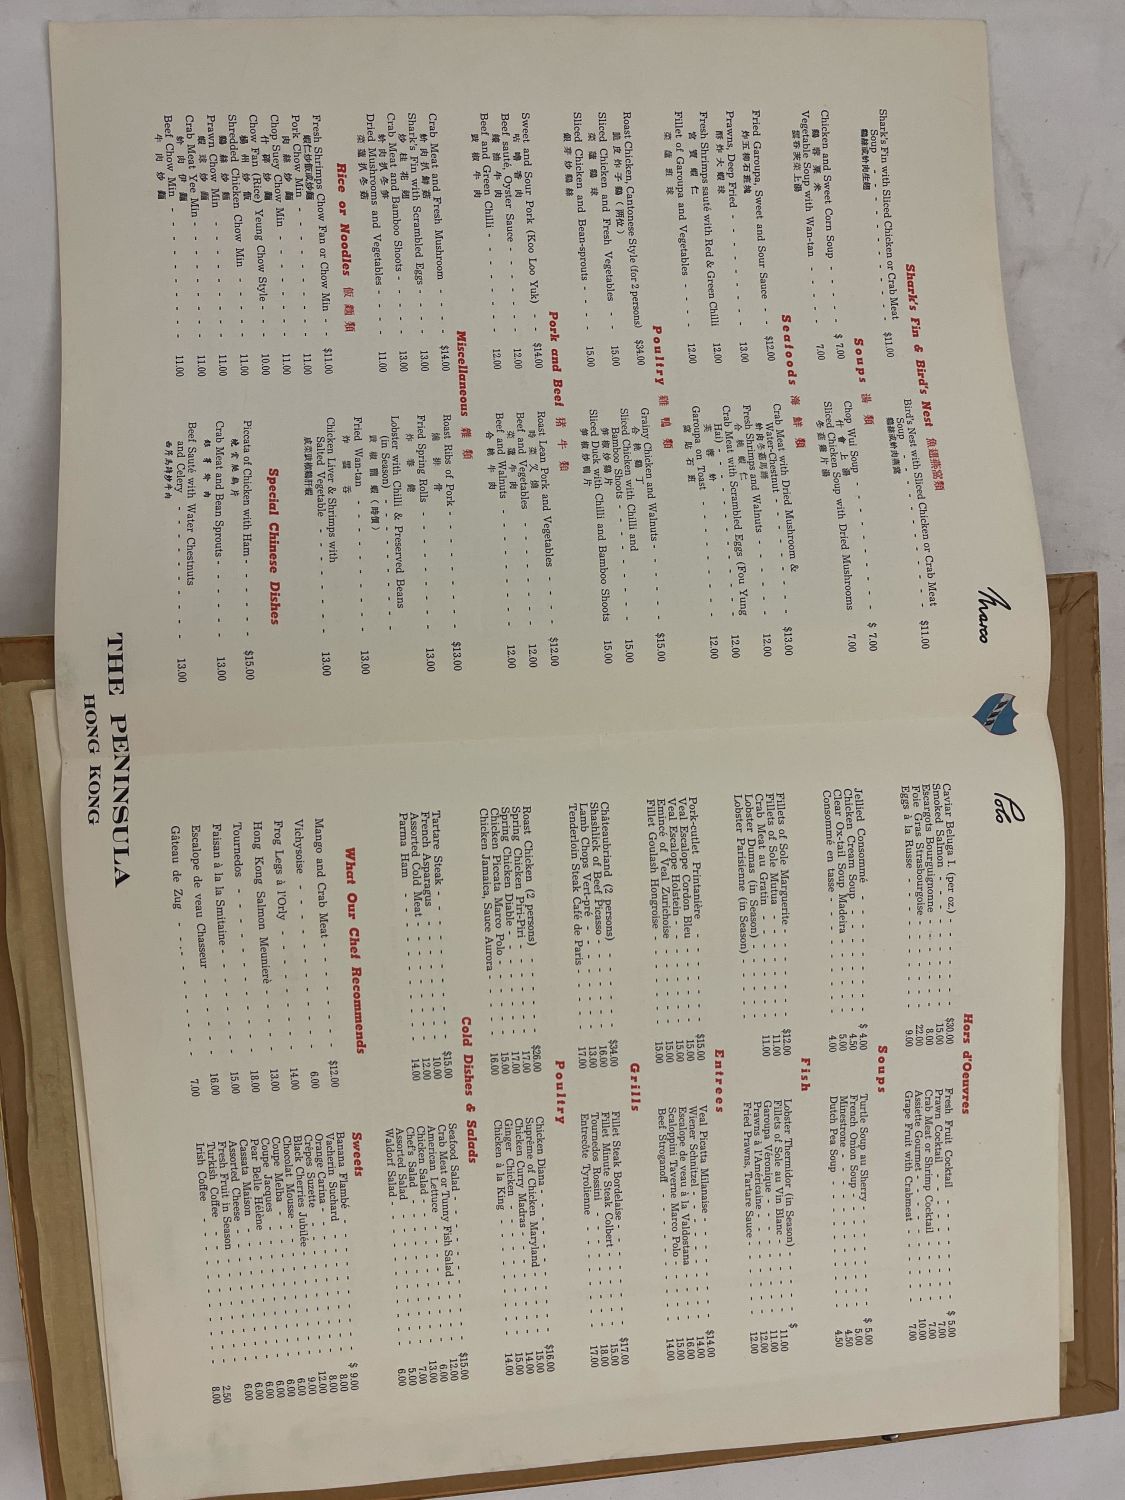 Marco
Shark's Fin & Bird's Nest 魚翅燕窩類
Shark's Fin with Sliced Chicken or Crab Meat
Soup - - - - - - - $11.00
鷄絲或蚧肉生翅
Bird's Nest with Sliced Chicken or Crab Meat
Soup - - - - - - - $11.00
鷄絲或蚧肉燕窩
Soups 湯類
Chicken and Sweet Corn Soup - - - $ 7.00
鷄蓉粟米
Vegetable Soup with Wan-tan - - - 7.00
Chop Wui Soup - - - - - - $ 7.00
什會上湯
Sliced Chicken Soup with Dried Mushrooms 7.00
冬菇鷄片湯
Seafoods 海鮮類
Fried Garoupa, Sweet and Sour Sauce - - $12.00
炸五柳石斑塊
Prawns, Deep Fried - - - - - 13.00
酥炸大蝦球
Fresh Shrimps sauté with Red & Green Chilli 12.00
Fillet of Garoupa and Vegetables - - - 12.00
菜薳班球
Crab Meat with Dried Mushroom &
Water-Chestnut - - - - - $13.00
蚧肉冬菇馬蹄
Fresh Shrimps and Walnuts - - - - 12.00
合桃蝦仁
Crab Meat with Scrambled Eggs (Fou Yung
Hai) - - - - - - - 12.00
芙蓉蚧
Garoupa on Toast - - - - - 12.00
窩貼石班
Poultry 雞鴨類
Roast Chicken, Cantonese Style (for 2 persons) $34.00
脆皮炸子鷄（兩位）
Sliced Chicken and Fresh Vegetables - - 15.00
菜薳鷄球
Sliced Chicken and Bean-sprouts - - - 15.00
銀芽炒鷄絲
Grainy Chicken and Walnuts - - - - $15.00
合桃鷄丁
Sliced Chicken with Chilli and
Bamboo Shoots - - - - - 15.00
筍椒炒鷄片
Sliced Duck with Chilli and Bamboo Shoots 15.00
筍椒炒鴨片
Pork and Beef 猪牛類
Sweet and Sour Pork (Koo Loo Yuk) - - $14.00
咕嚕香肉
Beef sauté, Oyster Sauce - - - - 12.00
蠔油牛肉
Beef and Green Chilli - - - - - 12.00
豉椒牛肉
Roast Lean Pork and Vegetables - - - $12.00
時菜叉燒
Beef and Vegetables - - - - - 12.00
菜薳牛肉
Beef and Walnuts - - - - - 12.00
合桃牛肉
Miscellaneous 雜類
Crab Meat and Fresh Mushroom - - - $14.00
蚧肉扒鮮菇
Shark's Fin with Scrambled Eggs - - - 13.00
炒桂花翅
Crab Meat and Bamboo Shoots - - - 13.00
蚧肉扒冬筍
Dried Mushrooms and Vegetables - - - 11.00
菜薳扒冬菇
Roast Ribs of Pork - - - - - $13.00
燒排骨
Fried Spring Rolls - - - - - 13.00
炸春卷
Lobster with Chilli & Preserved Beans
(in Season) - - - - - -
豉椒龍蝦（時價）
Fried Wan-tan - - - - - - 13.00
炸雲吞
Chicken Liver & Shrimps with
Salted Vegetable - - - - - 13.00
Rice or Noodles 飯麵類
Fresh Shrimps Chow Fan or Chow Min - - $11.00
蝦仁炒飯或炒麵
Pork Chow Min - - - - - - 11.00
肉絲炒麵
Chop Suey Chow Min - - - - - 11.00
什碎炒麵
Chow Fan (Rice) Yeung Chow Style - - - 10.00
楊州炒飯
Shredded Chicken Chow Min - - - - 11.00
鷄絲炒麵
Prawn Chow Min - - - - - - 11.00
蝦球炒麵
Crab Meat Yee Min - - - - - 11.00
蚧肉伊麵
Beef Chow Min - - - - - - 11.00
牛肉炒麵
Special Chinese Dishes
Piccata of Chicken with Ham - - - - $15.00
Crab Meat and Bean Sprouts - - - - 13.00
Beef Sauté with Water Chestnuts
and Celery - - - - - - 13.00
Polo
Hors d'Oeuvres
Caviar Beluga I. (per oz.) - - - - $30.00
Smoked Salmon - - - - - - 15.00
Escargots Bourguignonne - - - - 8.00
Foie Gras Strasbourgoise - - - - 22.00
Eggs à la Russe - - - - - - 9.00
Fresh Fruit Cocktail - - - - - $ 5.00
Prawn Cocktail - - - - - - 7.00
Crab Meat or Shrimp Cocktail - - - 7.00
Assiette Gourmet - - - - - - 10.00
Grape Fruit with Crabmeat - - - - 7.00
Soups
Jellied Consommé - - - - - - $ 4.00
Chicken Cream Soup - - - - - 4.50
Clear Ox-tail Soup Madeira - - - - 5.00
Consommé en tasse - - - - - - 4.00
Turtle Soup au Sherry - - - - - $ 5.00
French Onion Soup - - - - - - 5.00
Minestrone - - - - - - - 4.50
Dutch Pea Soup - - - - - - 4.50
Fish
Fillets of Sole Marguerite - - - - $12.00
Fillets of Sole Mutua - - - - - 11.00
Crab Meat au Gratin - - - - - 11.00
Lobster Dumas (in Season) - - - -
Lobster Parisienne (in Season) - - - -
Lobster Thermidor (in Season) - - - $
Fillets of Sole au Vin Blanc - - - - 11.00
Garoupa Véronique - - - - - 11.00
Prawns à l'Américaine - - - - - 12.00
Fried Prawns, Tartare Sauce - - - - 12.00
Entrees
Pork-cutlet Printanière - - - - - $15.00
Veal Escalope Cordon Bleu - - - - 15.00
Veal Escalope Holstein - - - - - 15.00
Emincé of Veal Zurichoise - - - - 15.00
Fillet Goulash Hongroise - - - - 15.00
Veal Picatta Milanaise - - - - - $14.00
Wiener Schnitzel - - - - - - 14.00
Escalope de veau à la Valdostana - - - 16.00
Scaloppini Taverne Marco Polo - - - 15.00
Beef Stroganoff - - - - - - 14.00
Grills
Châteaubriand (2 persons) - - - - $34.00
Shashlick of Beef Picasso - - - - 16.00
Lamb Chops Vert-pré - - - - - 13.00
Tenderloin Steak Café de Paris - - - 17.00
Fillet Steak Bordelaise - - - - - $17.00
Fillet Minute Steak Colbert - - - - 15.00
Tournedos Rossini - - - - - - 18.00
Entrecôte Tyrolienne - - - - - 17.00
Poultry
Roast Chicken (2 persons) - - - - $26.00
Spring Chicken Piri-Piri - - - - 17.00
Spring Chicken Diable - - - - - 17.00
Chicken Piccata Marco Polo - - - - 15.00
Chicken Jamaica, Sauce Aurora - - - 16.00
Chicken Diana - - - - - - $16.00
Suprême of Chicken Maryland - - - 15.00
Chicken Curry Madras - - - - - 14.00
Ginger Chicken - - - - - - 15.00
Chicken à la King - - - - - - 14.00
Cold Dishes & Salads
Tartare Steak - - - - - - $15.00
French Asparagus - - - - - - 10.00
Assorted Cold Meat - - - - - 12.00
Parma Ham - - - - - - - 14.00
Seafood Salad - - - - - - $15.00
Crab Meat or Tunny Fish Salad - - - 12.00
American Lettuce - - - - - - 6.00
Chicken Salad - - - - - - 13.00
Chef's Salad - - - - - - 7.00
Assorted Salad - - - - - - 5.00
Waldorf Salad - - - - - - 6.00
What Our Chef Recommends
Mango and Crab Meat - - - - - $12.00
Vichysoise - - - - - - - 6.00
Frog Legs à l'Orly - - - - - 14.00
Hong Kong Salmon Meunierè - - - - 13.00
Tournedos - - - - - - - 18.00
Faisan à la la Smitaine - - - - 15.00
Escalope de veau Chasseur - - - - 16.00
Gâteau de Zug - - - - - - 7.00
Sweets
Banana Flambé - - - - - - $ 9.00
Vacherin Suchard - - - - - - 8.00
Orange Carina - - - - - - 8.00
Crêpes Suzette - - - - - - 12.00
Black Cherries Jubilée - - - - - 9.00
Chocolat Mousse - - - - - - 6.00
Coupe Melba - - - - - - 6.00
Coupe Jacques - - - - - - 6.00
Pear Belle Hélène - - - - - - 6.00
Cassata Maison - - - - - - 6.00
Assorted Cheese - - - - - - 6.00
Fresh Fruit in Season - - - - -
Turkish Coffee - - - - - - 2.50
Irish Coffee - - - - - - - 8.00
THE PENINSULA
HONG KONG